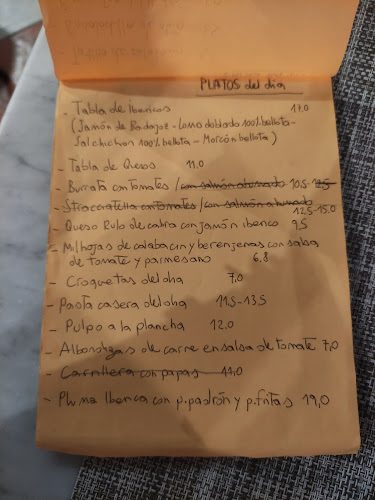 PLATOS del dia
- Tabla de ibericos 17,0
(Jamón de Badajoz - Lomo doblado 100% bellota -
Salchichon 100% bellota - Morcón bellota)
- Tabla de Quesos 11.0
- Burrata con tomates / con salmón ahumado 10.5 - 12,5
- Stracciatella con tomates / con salmón ahumado 12,5 - 15,0
- Queso Rulo de cabra con jamón iberico 9,5
- Milhojas de calabacin y berenjenas con salsa
de tomate y parmesano 6,8
- Croquetas del dia 7,0
- Pasta casera del dia 11.5 - 13.5
- Pulpo a la plancha 12.0
- Albondigas de carne en salsa de tomate 7,0
- Carrillera con papas 11,0
- Pluma Iberica con p.padrón y p.fritas 19,0